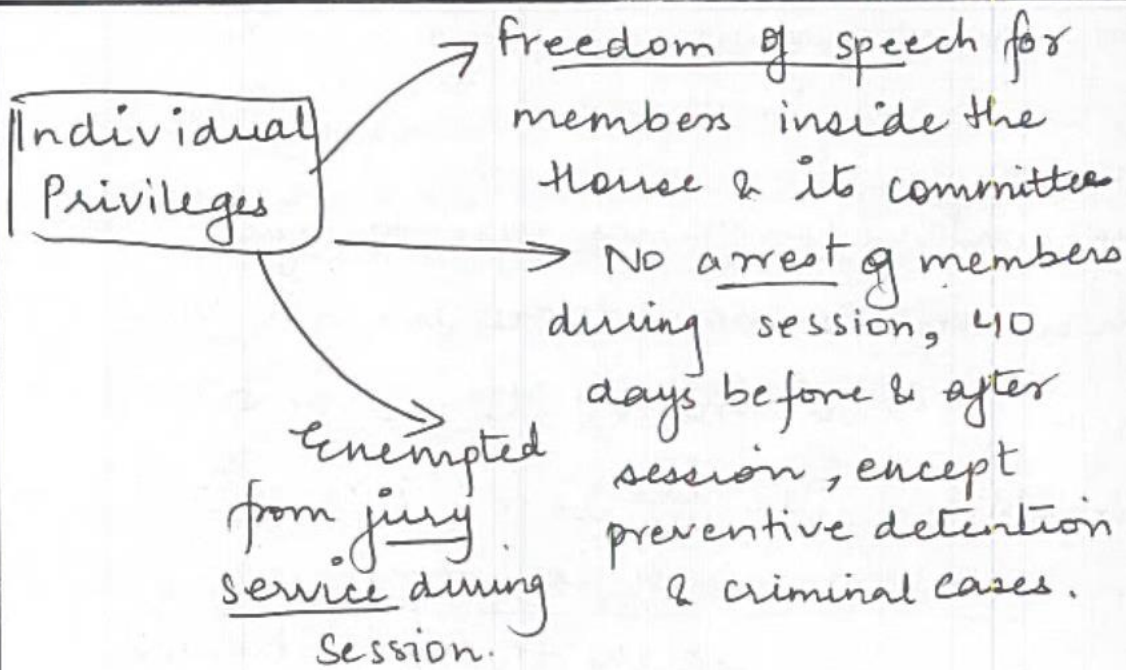 Individual
Privileges
freedom of speech for
members inside the
House & its committees
No arrest of members
during session, 40
days before & after
session, except
preventive detention
& criminal cases.
Exempted
from jury
service during
session.